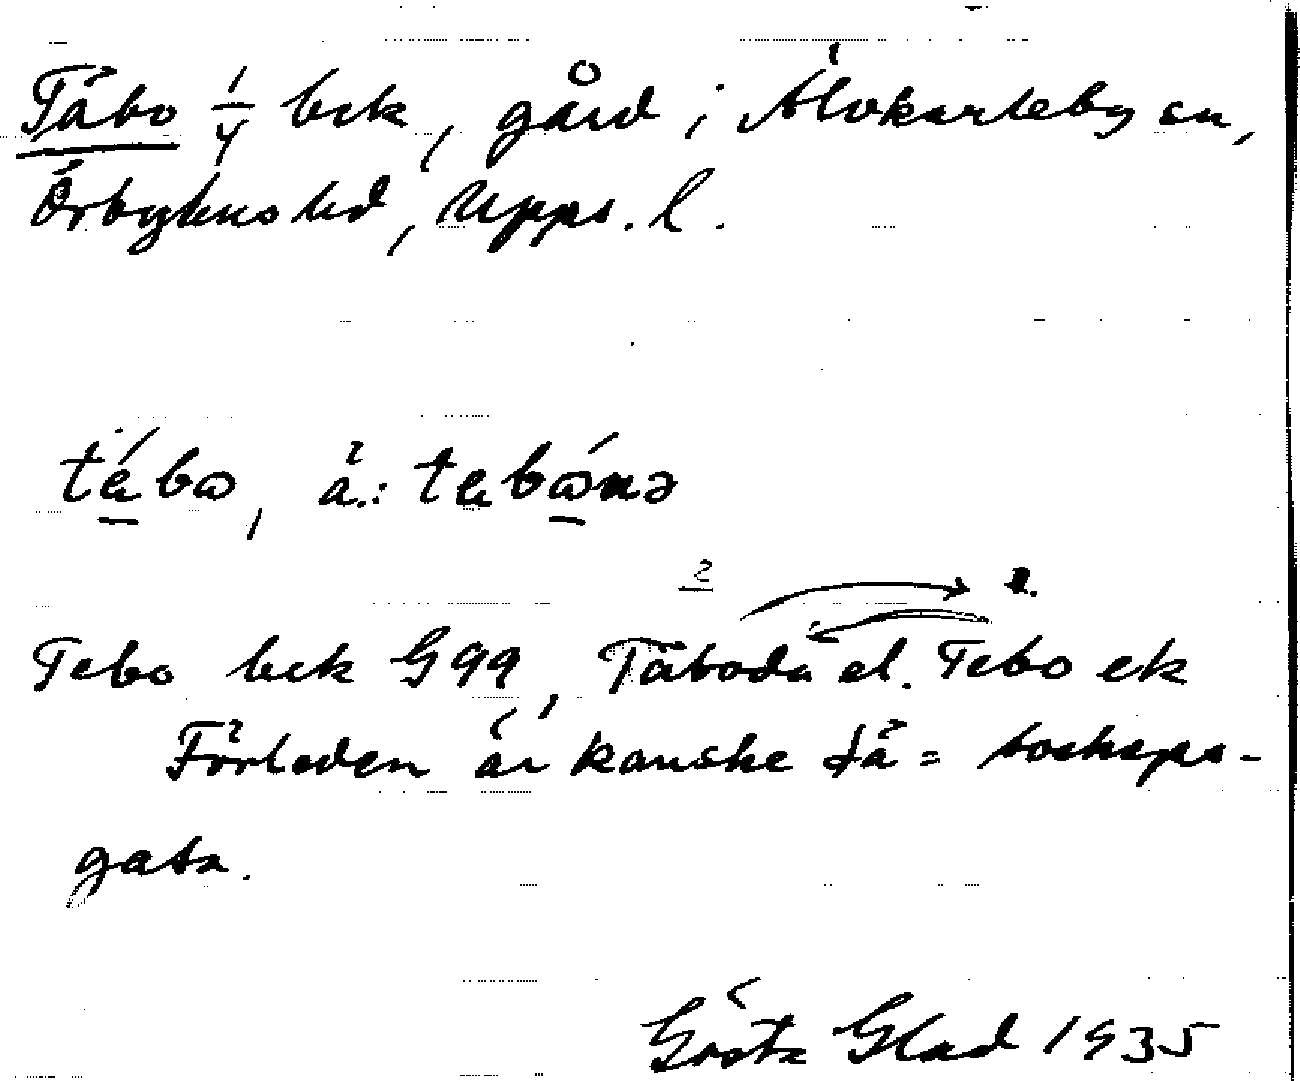 Täbo 1/4 bck, gård i Älvkarleby sn,
Örbyhus hd, Upps. l.
tébω, ä.: tebώnə
2 1.
Tebo bck G99, Täboda el. Tebo ek
Förleden är kanske fä = boskaps-
gata.
Gösta Glad 1935